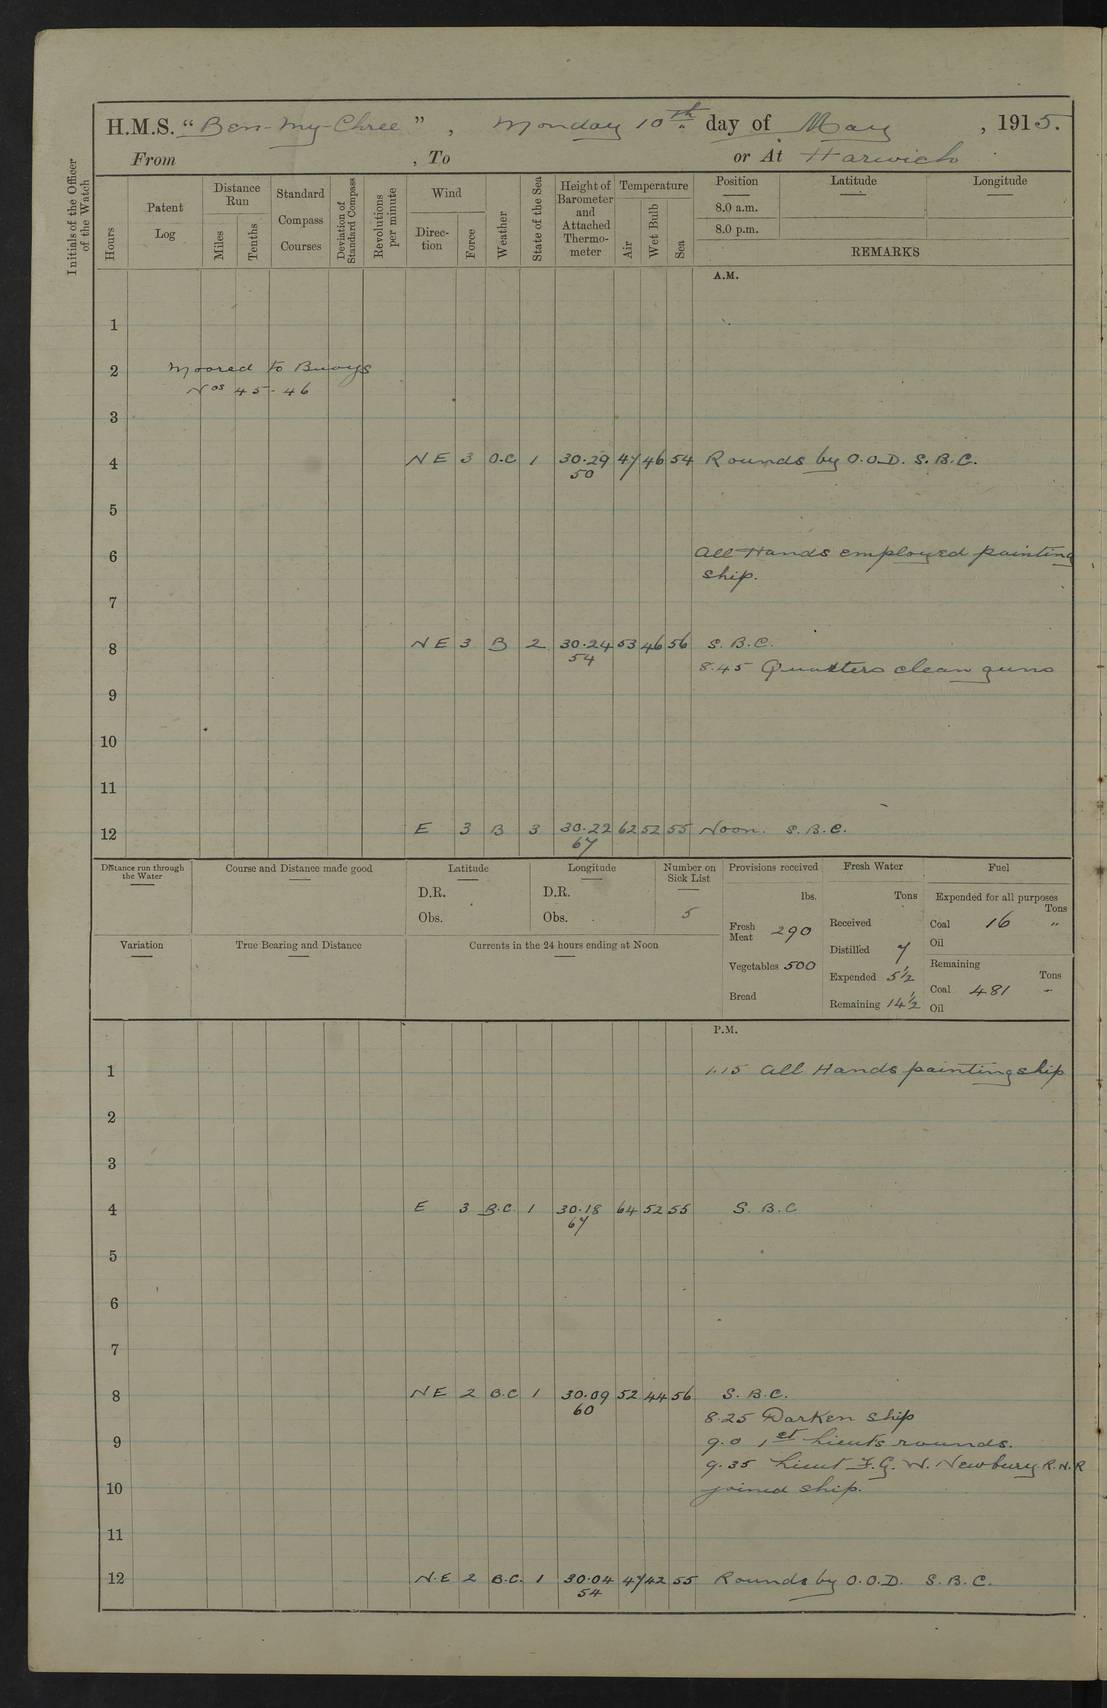 H.M.S. "Ben-my-Chree", Monday 10th day of May, 1915.
From , To or At Harwich
Initials of the Officer of the Watch
Hours
Patent Log
Distance Run
Miles
Tenths
Standard Compass Courses
Deviation of Standard Compass
Revolutions per minute
Wind
Direction
Force
Weather
State of the Sea
Height of Barometer and Attached Thermometer
Temperature
Air
Wet Bulb
Sea
Position Latitude Longitude
8.0 a.m.
8.0 p.m.
REMARKS
A.M.
1
2 Moored to Buoys
Nos 45-46
3
4 NE 3 O.C 1 30.29 47 46 54 Rounds by O.O.D. S.B.C.
50
5
6 All Hands employed painting
ship.
7
8 NE 3 B 2 30.24 53 46 56 S.B.C.
54
8.45 Quarters clean guns
9
10
11
12 E 3 B 3 30.22 62 52 55 Noon. S.B.C.
67
Distance run through the Water
Course and Distance made good
Latitude
D.R.
Obs.
Longitude
D.R.
Obs.
Number on Sick List
5
Provisions received
lbs.
Fresh Meat 290
Vegetables 500
Bread
Fresh Water
Tons
Received
Distilled 7
Expended 5½
Remaining 14½
Fuel
Expended for all purposes
Tons
Coal 16 "
Oil
Remaining
Tons
Coal 481 -
Oil
Variation
True Bearing and Distance
Currents in the 24 hours ending at Noon
P.M.
1 1.15 All Hands painting ship
2
3
4 E 3 B.C. 1 30.18 64 52 55 S.B.C
67
5
6
7
8 NE 2 B.C 1 30.09 52 44 56 S.B.C.
60
8.25 Darken ship
9 9.0 1st Lieuts rounds.
9.35 Lieut F.G.W. Newbury R.N.R
10 joined ship.
11
12 N.E 2 B.C. 1 30.04 47 42 55 Rounds by O.O.D. S.B.C.
54